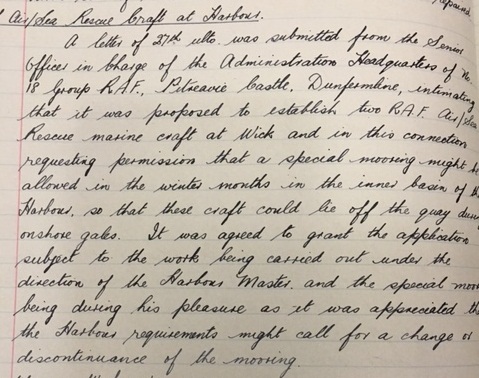 Air/Sea Rescue Craft at Harbour.
A letter of 27th ulto. was submitted from the Senior
Officer in Charge of the Administration Headquarters of No.
18 Group R.A.F., Pitreavie Castle, Dunfermline, intimating
that it was proposed to establish two R.A.F. Air/Sea
Rescue marine craft at Wick and in this connection
requesting permission that a special mooring might be
allowed in the winter months in the inner basin of th
Harbour, so that these craft could lie off the quay durin
onshore gales. It was agreed to grant the application
subject to the work being carried out under the
direction of the Harbour Master, and the special moor
being during his pleasure as it was appreciated th
the Harbour requirements might call for a change or
discontinuance of the mooring.